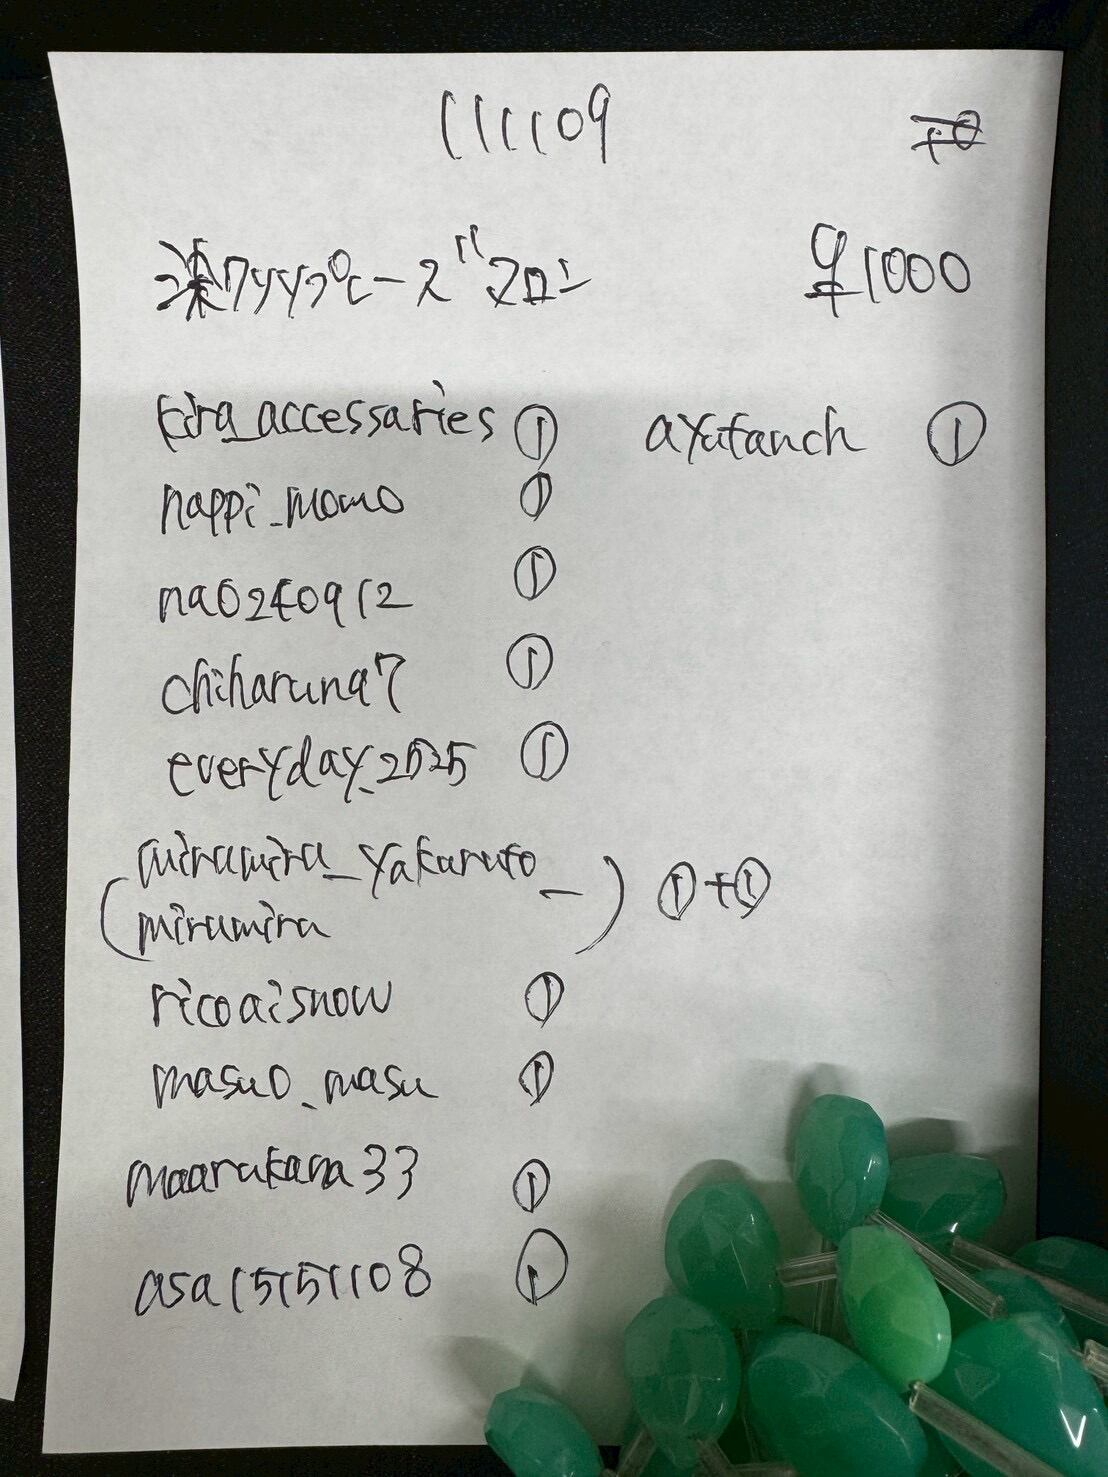 111109
深クリソプレーズマロン ¥1000
kira_accessaries ① ayutanch ①
nappi_momo ①
na0240912 ①
chiharuna7 ①
everyday_2525 ①
(miramira_yakuruto_
miramira) ①+①
ricoaisnow ①
masuo_masu ①
maarukana33 ①
asa15151108 ①